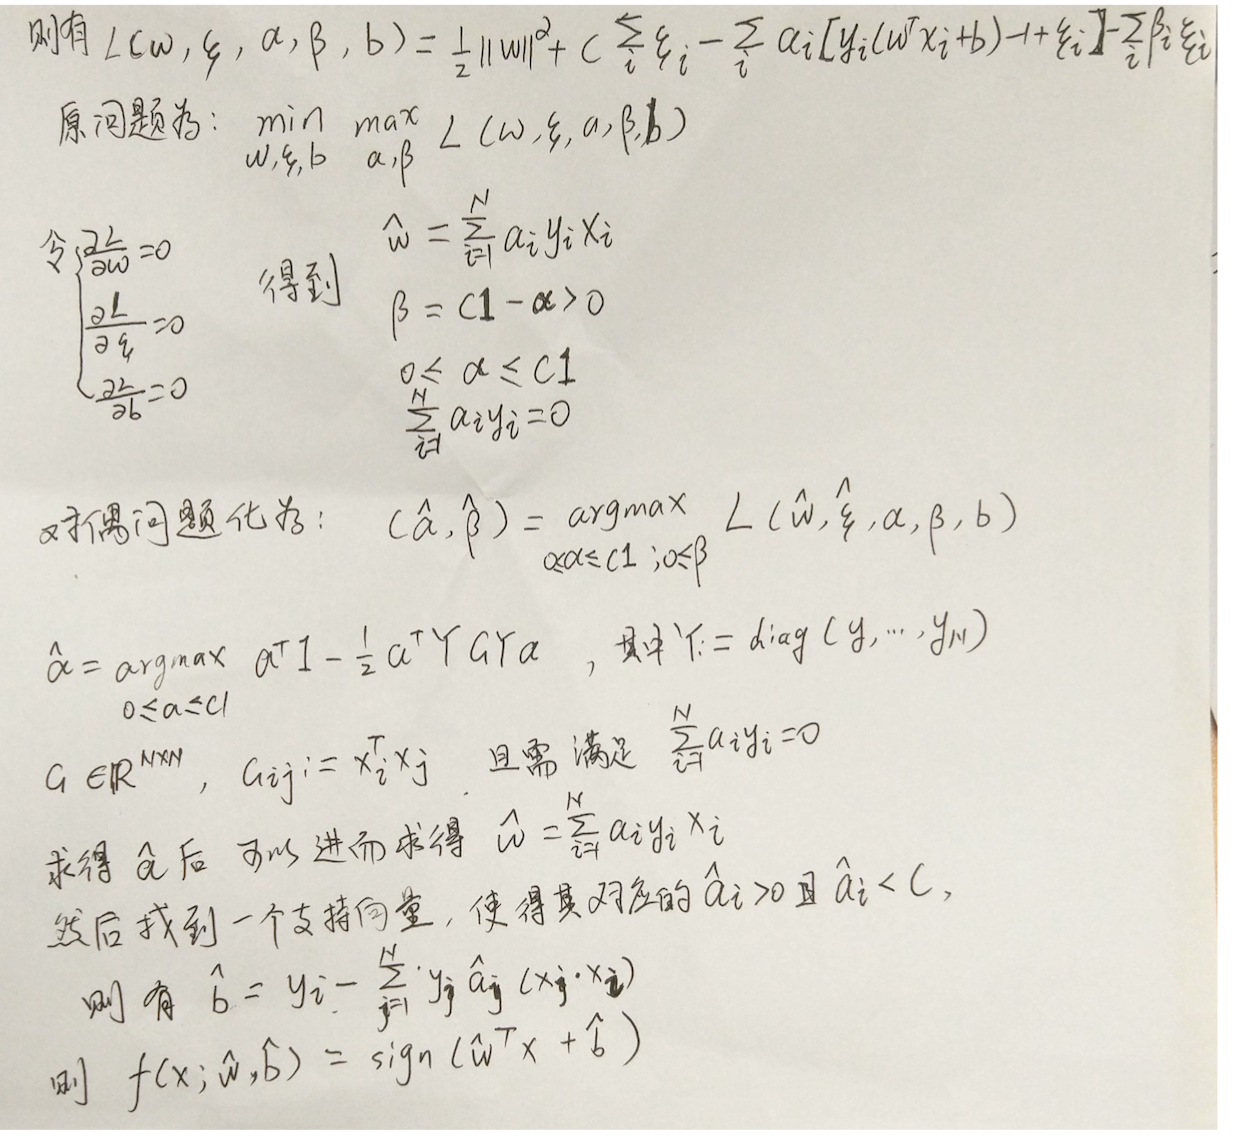 则有 L(w, ξ, α, β, b) = ½||w||² + C ∑ᵢ ξᵢ − ∑ᵢ αᵢ[yᵢ(wᵀxᵢ+b) −1+ ξᵢ] − ∑ᵢ βᵢ ξᵢ
原问题为: min_{w,ξ,b} max_{α,β} L (w, ξ, α, β, b)
令 { ∂L/∂w = 0
∂L/∂ξ = 0
∂L/∂b = 0
得到
ŵ = ∑_{i=1}^{N} αᵢ yᵢ xᵢ
β = C1 − α > 0
0 ≤ α ≤ C1
∑_{i=1}^{N} αᵢyᵢ = 0
对偶问题化为: (α̂, β̂) = argmax_{0≤α≤C1 ; 0≤β} L (ŵ, ξ̂, α, β, b)
α̂ = argmax_{0≤α≤C1} αᵀ1 − ½ αᵀYGYα , 其中 Y := diag (y, ⋯, y_N)
G ∈ ℝ^{N×N}, G_{ij} := xᵢᵀxⱼ 且需满足 ∑_{i=1}^{N} αᵢyᵢ = 0
求得 α̂ 后 可以进而求得 ŵ = ∑_{i=1}^{N} αᵢ yᵢ xᵢ
然后找到一个支持向量, 使得其对应的 α̂ᵢ > 0 且 α̂ᵢ < C,
则有 b̂ = yᵢ − ∑_{j=1}^{N} yⱼ α̂ⱼ (xⱼ · xᵢ)
则 f(x; ŵ, b̂) = sign (ŵᵀx + b̂)